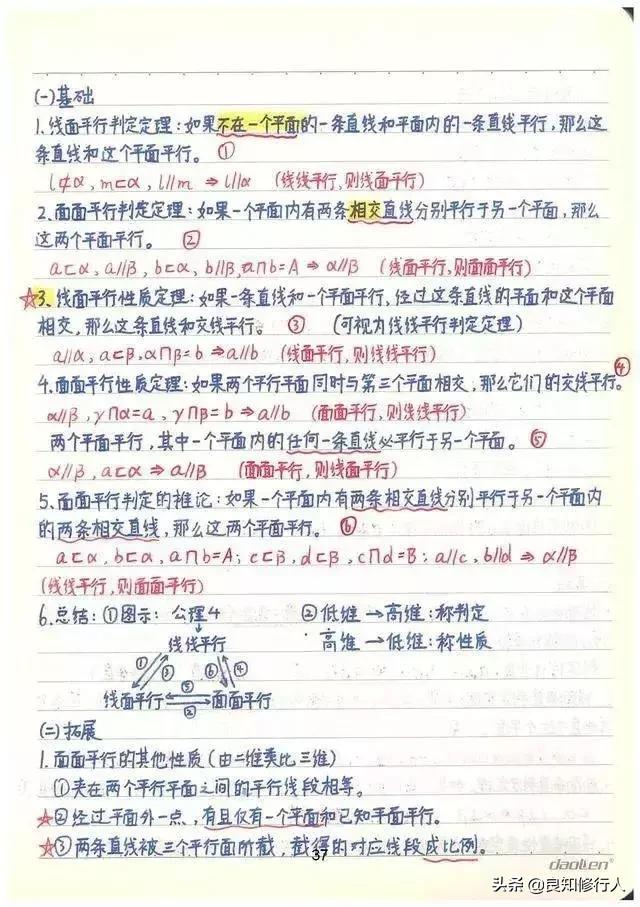 (一)基础
1.线面平行判定定理:如果不在一个平面的一条直线和平面内的一条直线平行,那么这
条直线和这个平面平行。 ①
l⊄α, m⊂α, l∥m ⇒ l∥α (线线平行,则线面平行)
2.面面平行判定定理:如果一个平面内有两条相交直线分别平行于另一个平面,那么
这两个平面平行。 ②
a⊂α, a∥β, b⊂α, b∥β, a∩b=A ⇒ α∥β (线面平行,则面面平行)
☆3.线面平行性质定理:如果一条直线和一个平面平行,经过这条直线的平面和这个平面
相交,那么这条直线和交线平行。 ③ (可视为线线平行判定定理)
a∥α, a⊂β, α∩β=b ⇒ a∥b (线面平行,则线线平行)
4.面面平行性质定理:如果两个平行平面同时与第三个平面相交,那么它们的交线平行。④
α∥β, γ∩α=a, γ∩β=b ⇒ a∥b (面面平行,则线线平行)
两个平面平行,其中一个平面内的任何一条直线必平行于另一个平面。 ⑤
α∥β, a⊂α ⇒ a∥β (面面平行,则线面平行)
5.面面平行判定的推论:如果一个平面内有两条相交直线分别平行于另一个平面内
的两条相交直线,那么这两个平面平行。 ⑥
a⊂α, b⊂α, a∩b=A; c⊂β, d⊂β, c∩d=B; a∥c, b∥d ⇒ α∥β
(线线平行,则面面平行)
6.总结:①图示: 公理4 ②低维→高维:称判定
线线平行 高维→低维:称性质
① ③ ⑥ ④
⑤
线面平行 面面平行
②
(二)拓展
1.面面平行的其他性质(由二维类比三维)
①夹在两个平行平面之间的平行线段相等。
★②经过平面外一点,有且仅有一个平面和已知平面平行。
★③两条直线被三个平行面所截,截得的对应线段成比例。
37
daolen
头条 @良知修行人